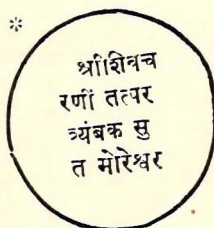 *
श्रीशिवच
रणीं तत्पर
त्र्यंबक सु
त मोरेश्वर